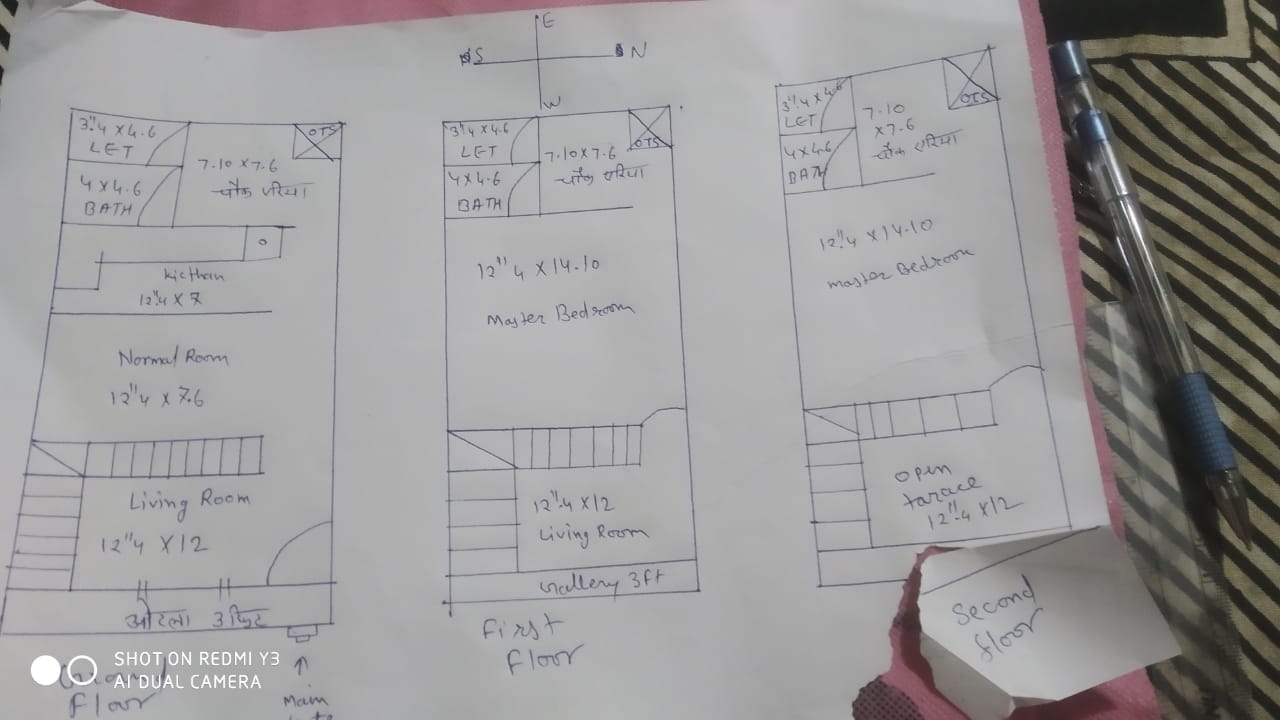 E
S N
W
3"4 x 4.6
LET
OTS
7.10 x 7.6
चौक एरिया
4 x 4.6
BATH
kicthan
12"4 x 7
Normal Room
12"4 x 7.6
Living Room
12"4 x 12
ओटला 3 फिट
Ground
floor
Main
3"4 x 4.6
LET
OTS
7.10 x 7.6
चौक एरिया
4 x 4.6
BATH
12"4 x 14.10
Master Bedroom
12"4 x 12
Living Room
Gallery 3ft
First
floor
3"4 x 4.6
LET
OTS
7.10
x 7.6
चौक एरिया
4 x 4.6
BATH
12"4 x 14.10
master Bedroom
open
tarace
12"4 x 12
Second
floor
SHOT ON REDMI Y3
AI DUAL CAMERA